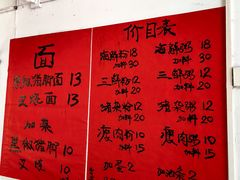 价目表
面
猪脚面 13
叉烧面 13
加菜
猪脚 10
叉烧
海鲜粉 18
加料 30
三鲜粉 12
加料 20
猪杂粉 12
加料 20
瘦肉粉 10
加料 15
加蛋 2
海鲜粥 18
加料 30
三鲜粥 12
加料 20
猪杂粥 12
加料 20
瘦肉粥 10
加料 15